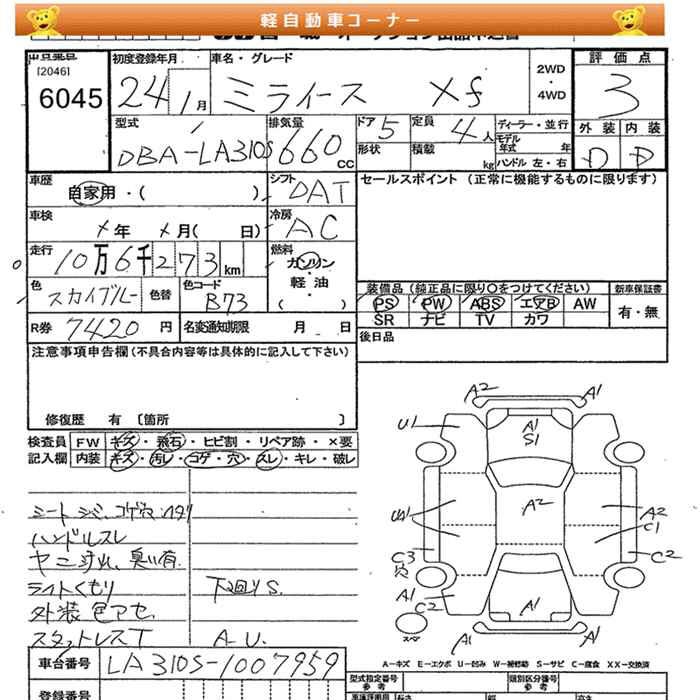 軽自動車コーナー
[2046]
6045
初度登録年月
24 年 1月
車名・グレード
ミライース Xf
2WD
・
4WD
評価点
3
外装 内装
D D
型式
DBA-LA310S
排気量
660 CC
ドア 5
形状
定員 4人
積載 kg
ディーラー・並行
モデル年式 年
ハンドル 左・右
車歴
自家用・( )
シフト
DAT
セールスポイント (正常に機能するものに限ります)
車検
X年 X月( 日)
冷房
AC
走行
10万6千273km
燃料
ガソリン
・
軽油
( )
色
スカイブルー
色替
色コード
B73
装備品 (純正品に限り○をつけてください)
PS PW ABS エアB AW
SR ナビ TV カワ
新車保証書
有・無
R券 7420円
名変通知期限 月 日
後日品
注意事項申告欄(不具合内容等は具体的に記入して下さい)
修復歴 有 〔箇所 〕
検査員
記入欄
FW キズ・飛石・ヒビ割・リペア跡・×要
内装 キズ・汚レ・コゲ・穴・スレ・キレ・破レ
シート シミ、コゲ穴
ハンドルスレ
ヤニ汚れ、臭い有
ライトくもり
外装色アセ
スタットレスT
下廻りS.
A-U.
A2
A1
U1
A1
S1
A2
U1
A2
C1
C3
穴
C2
A1
C2
A1
A1
A1
スペア
A-キズ E-エクボ U-凹み W-補修跡 S-サビ C-腐食 XX-交換済
車台番号
LA310S-1007959
登録番号
型式指定番号
参考
類別区分番号
参考